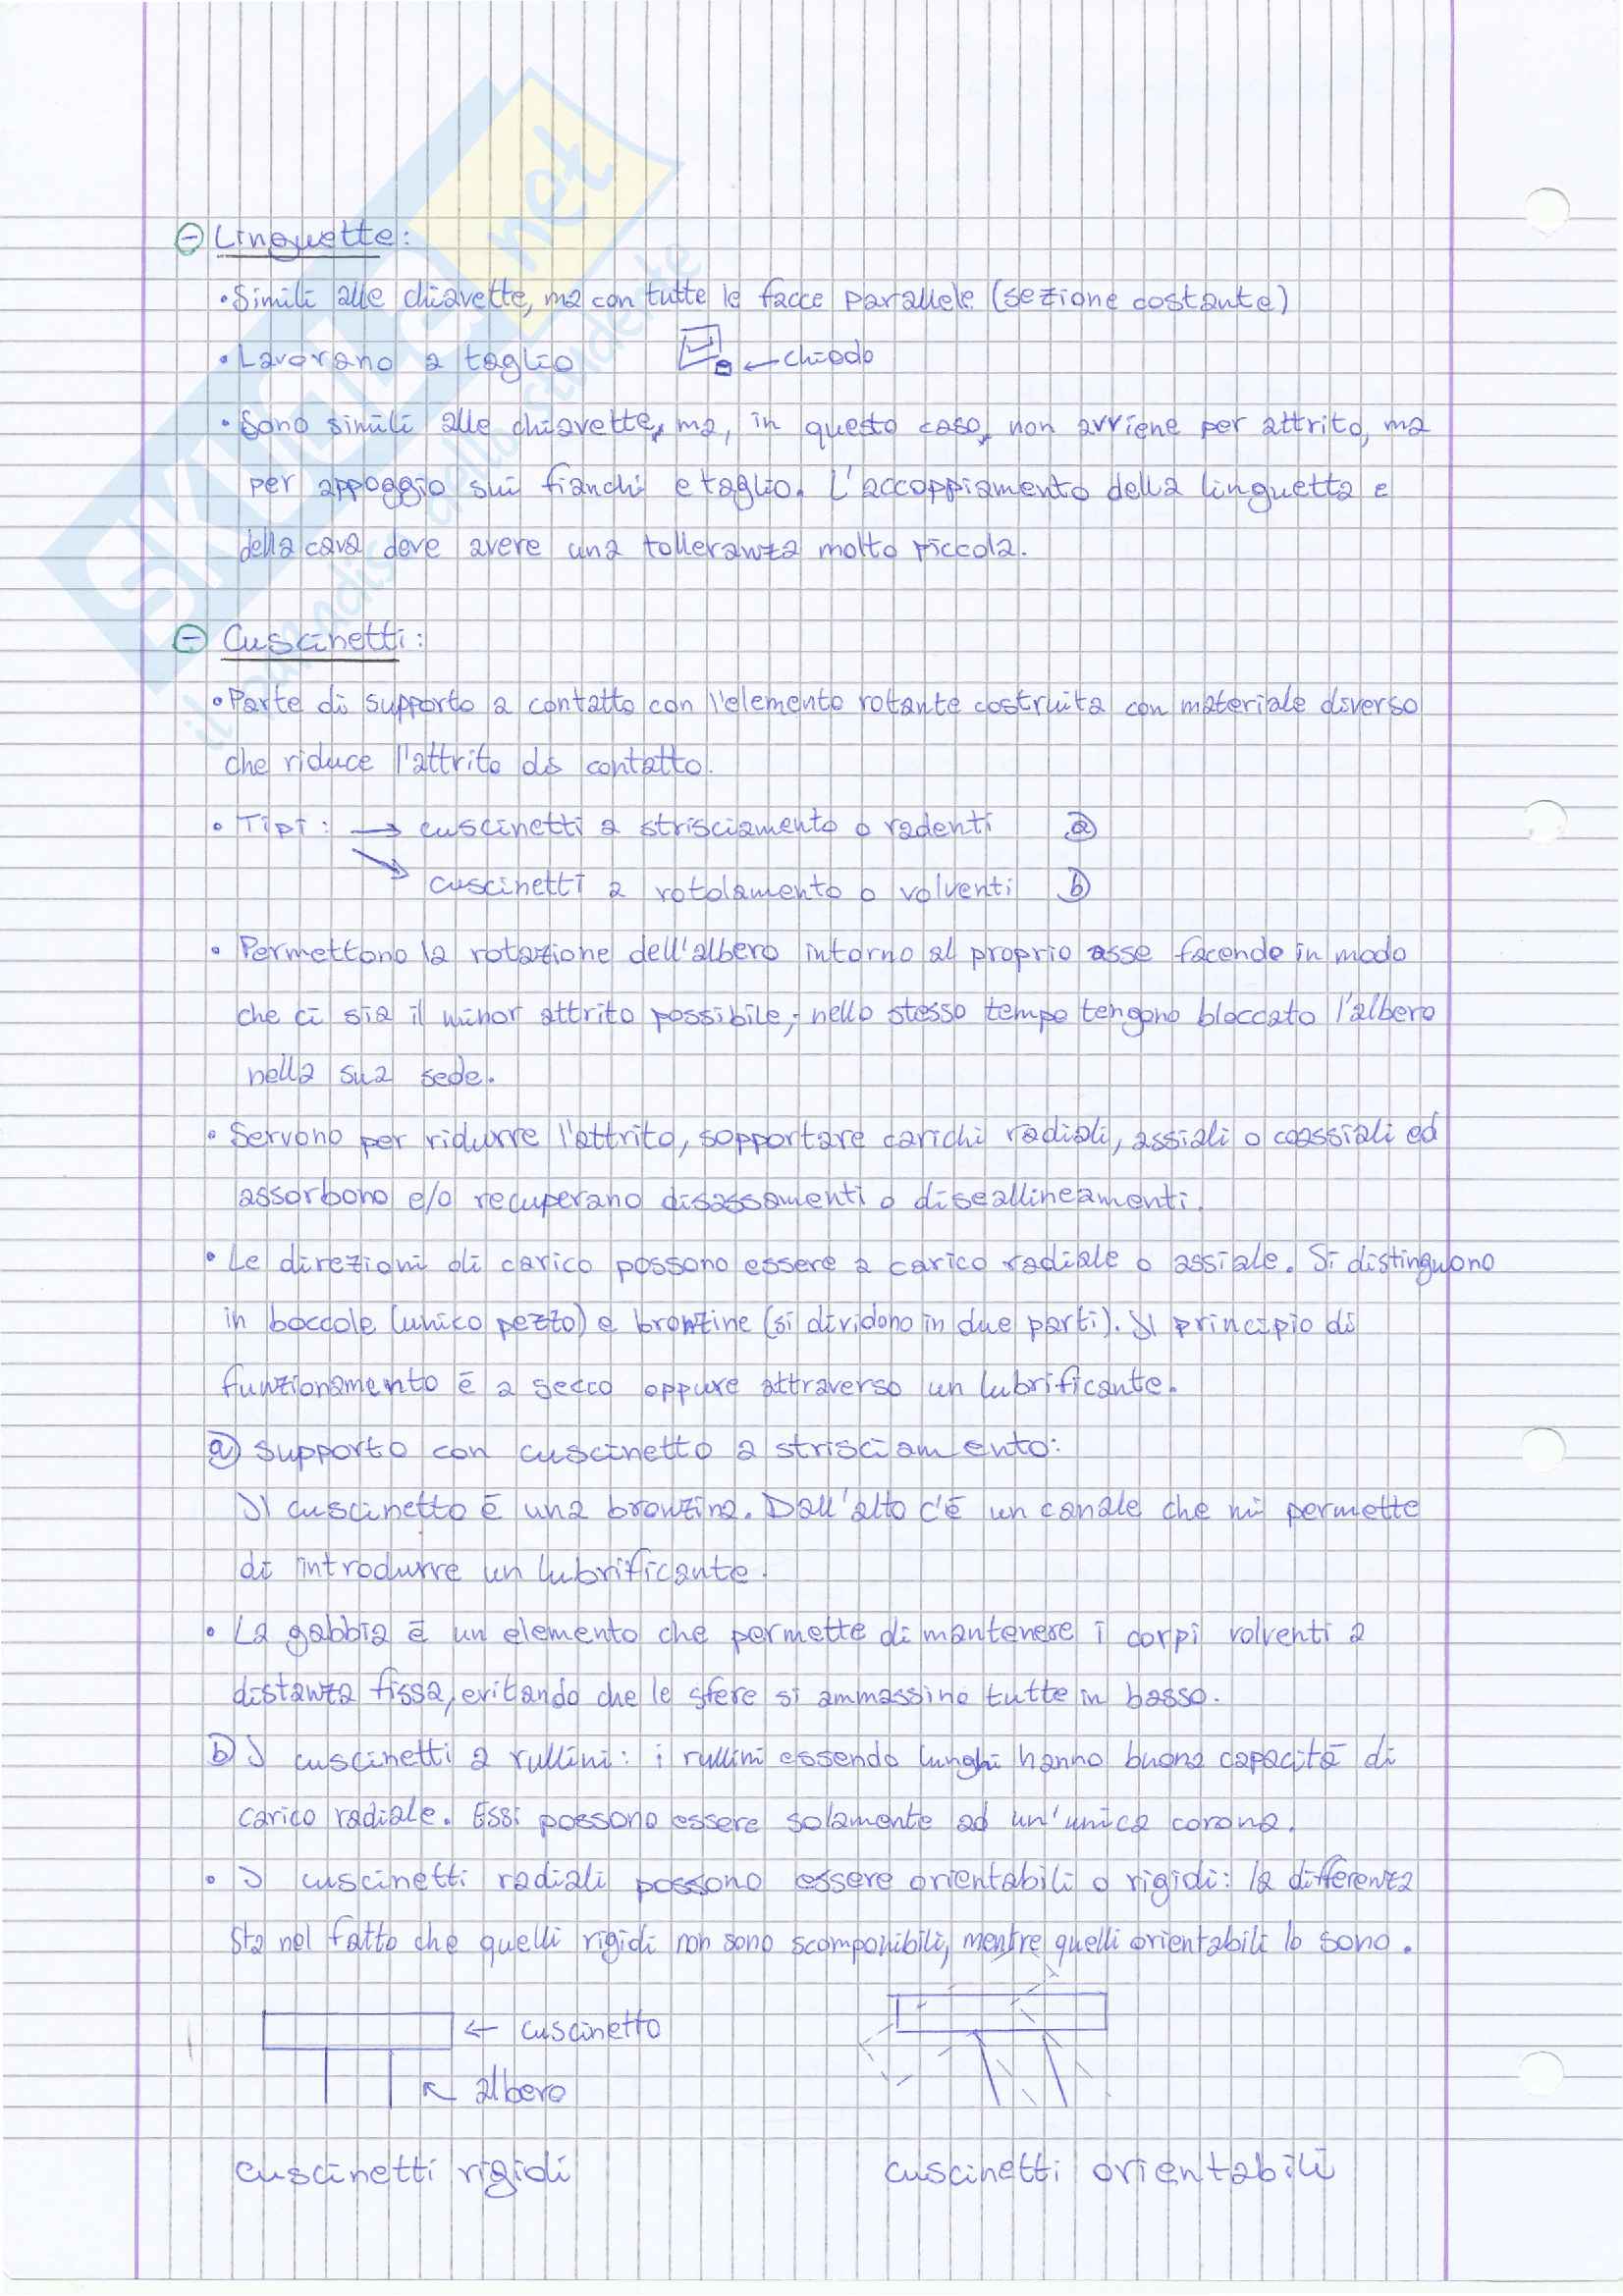 ⊖ Linguette:
• Simili alle chiavette, ma con tutte le facce parallele (sezione costante)
• Lavorano a taglio ← chiodo
• Sono simili alle chiavette, ma, in questo caso, non avviene per attrito, ma
per appoggio sui fianchi e taglio. L'accoppiamento della linguetta e
della cava deve avere una tolleranza molto piccola.
⊖ Cuscinetti:
• Parte di supporto a contatto con l'elemento rotante costruita con materiale diverso
che riduce l'attrito di contatto.
• Tipi: → cuscinetti a strisciamento o radenti ⓐ
↘ cuscinetti a rotolamento o volventi ⓑ
• Permettono la rotazione dell'albero intorno al proprio asse facendo in modo
che ci sia il minor attrito possibile; nello stesso tempo tengono bloccato l'albero
nella sua sede.
• Servono per ridurre l'attrito, sopportare carichi radiali, assiali o coassiali ed
assorbono e/o recuperano disassamenti o diseallineamenti.
• Le direzioni di carico possono essere a carico radiale o assiale. Si distinguono
in boccole (unico pezzo) e bronzine (si dividono in due parti). Il principio di
funzionamento è a secco oppure attraverso un lubrificante.
ⓐ supporto con cuscinetto a strisciamento:
Il cuscinetto è una bronzina. Dall'alto c'è un canale che mi permette
di introdurre un lubrificante.
• La gabbia è un elemento che permette di mantenere i corpi volventi a
distanza fissa, evitando che le sfere si ammassino tutte in basso.
ⓑ I cuscinetti a rullini: i rullini essendo lunghi hanno buona capacità di
carico radiale. Essi possono essere solamente ad un'unica corona.
• I cuscinetti radiali possono essere orientabili o rigidi: la differenza
sta nel fatto che quelli rigidi non sono scomponibili, mentre quelli orientabili lo sono.
← cuscinetto
↖ albero
cuscinetti rigidi
cuscinetti orientabili
SKUOLA.net
il paradiso dello studente